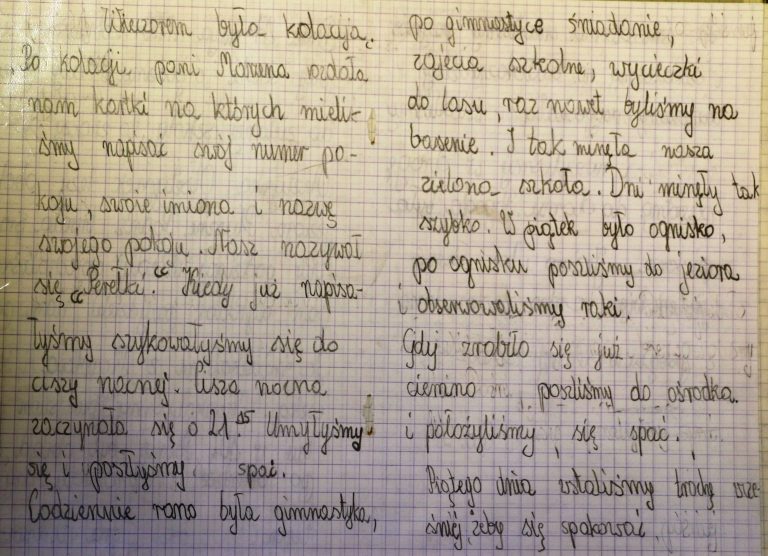 Wieczorem była kolacja.
Po kolacji pani Marzena rozdała
nam kartki na których mieli-
śmy napisać swój numer po-
koju, swoie imiona i nazwę
swojego pokoju. Nasz nazywał
się „Perełki”. Kiedy już napisa-
łyśmy szykowałyśmy się do
ciszy nocnej. Cisza nocna
zaczynała się o 21.15 Umyłyśmy
się i poszłyśmy spać.
Codziennie rano była gimnastyka,
po gimnastyce śniadanie,
zajęcia szkolne, wycieczki
do lasu, raz nawet byliśmy na
basenie. I tak minęła nasza
zielona szkoła. Dni minęły tak
szybko. W piątek było ognisko,
po ognisku poszliśmy do jeziora
i obserwowaliśmy raki.
Gdy zrobiło się już
ciemno poszliśmy do ośrodka
i położyliśmy się spać.
dnia wstaliśmy trochę wcze-
śniej, żeby się spakować.